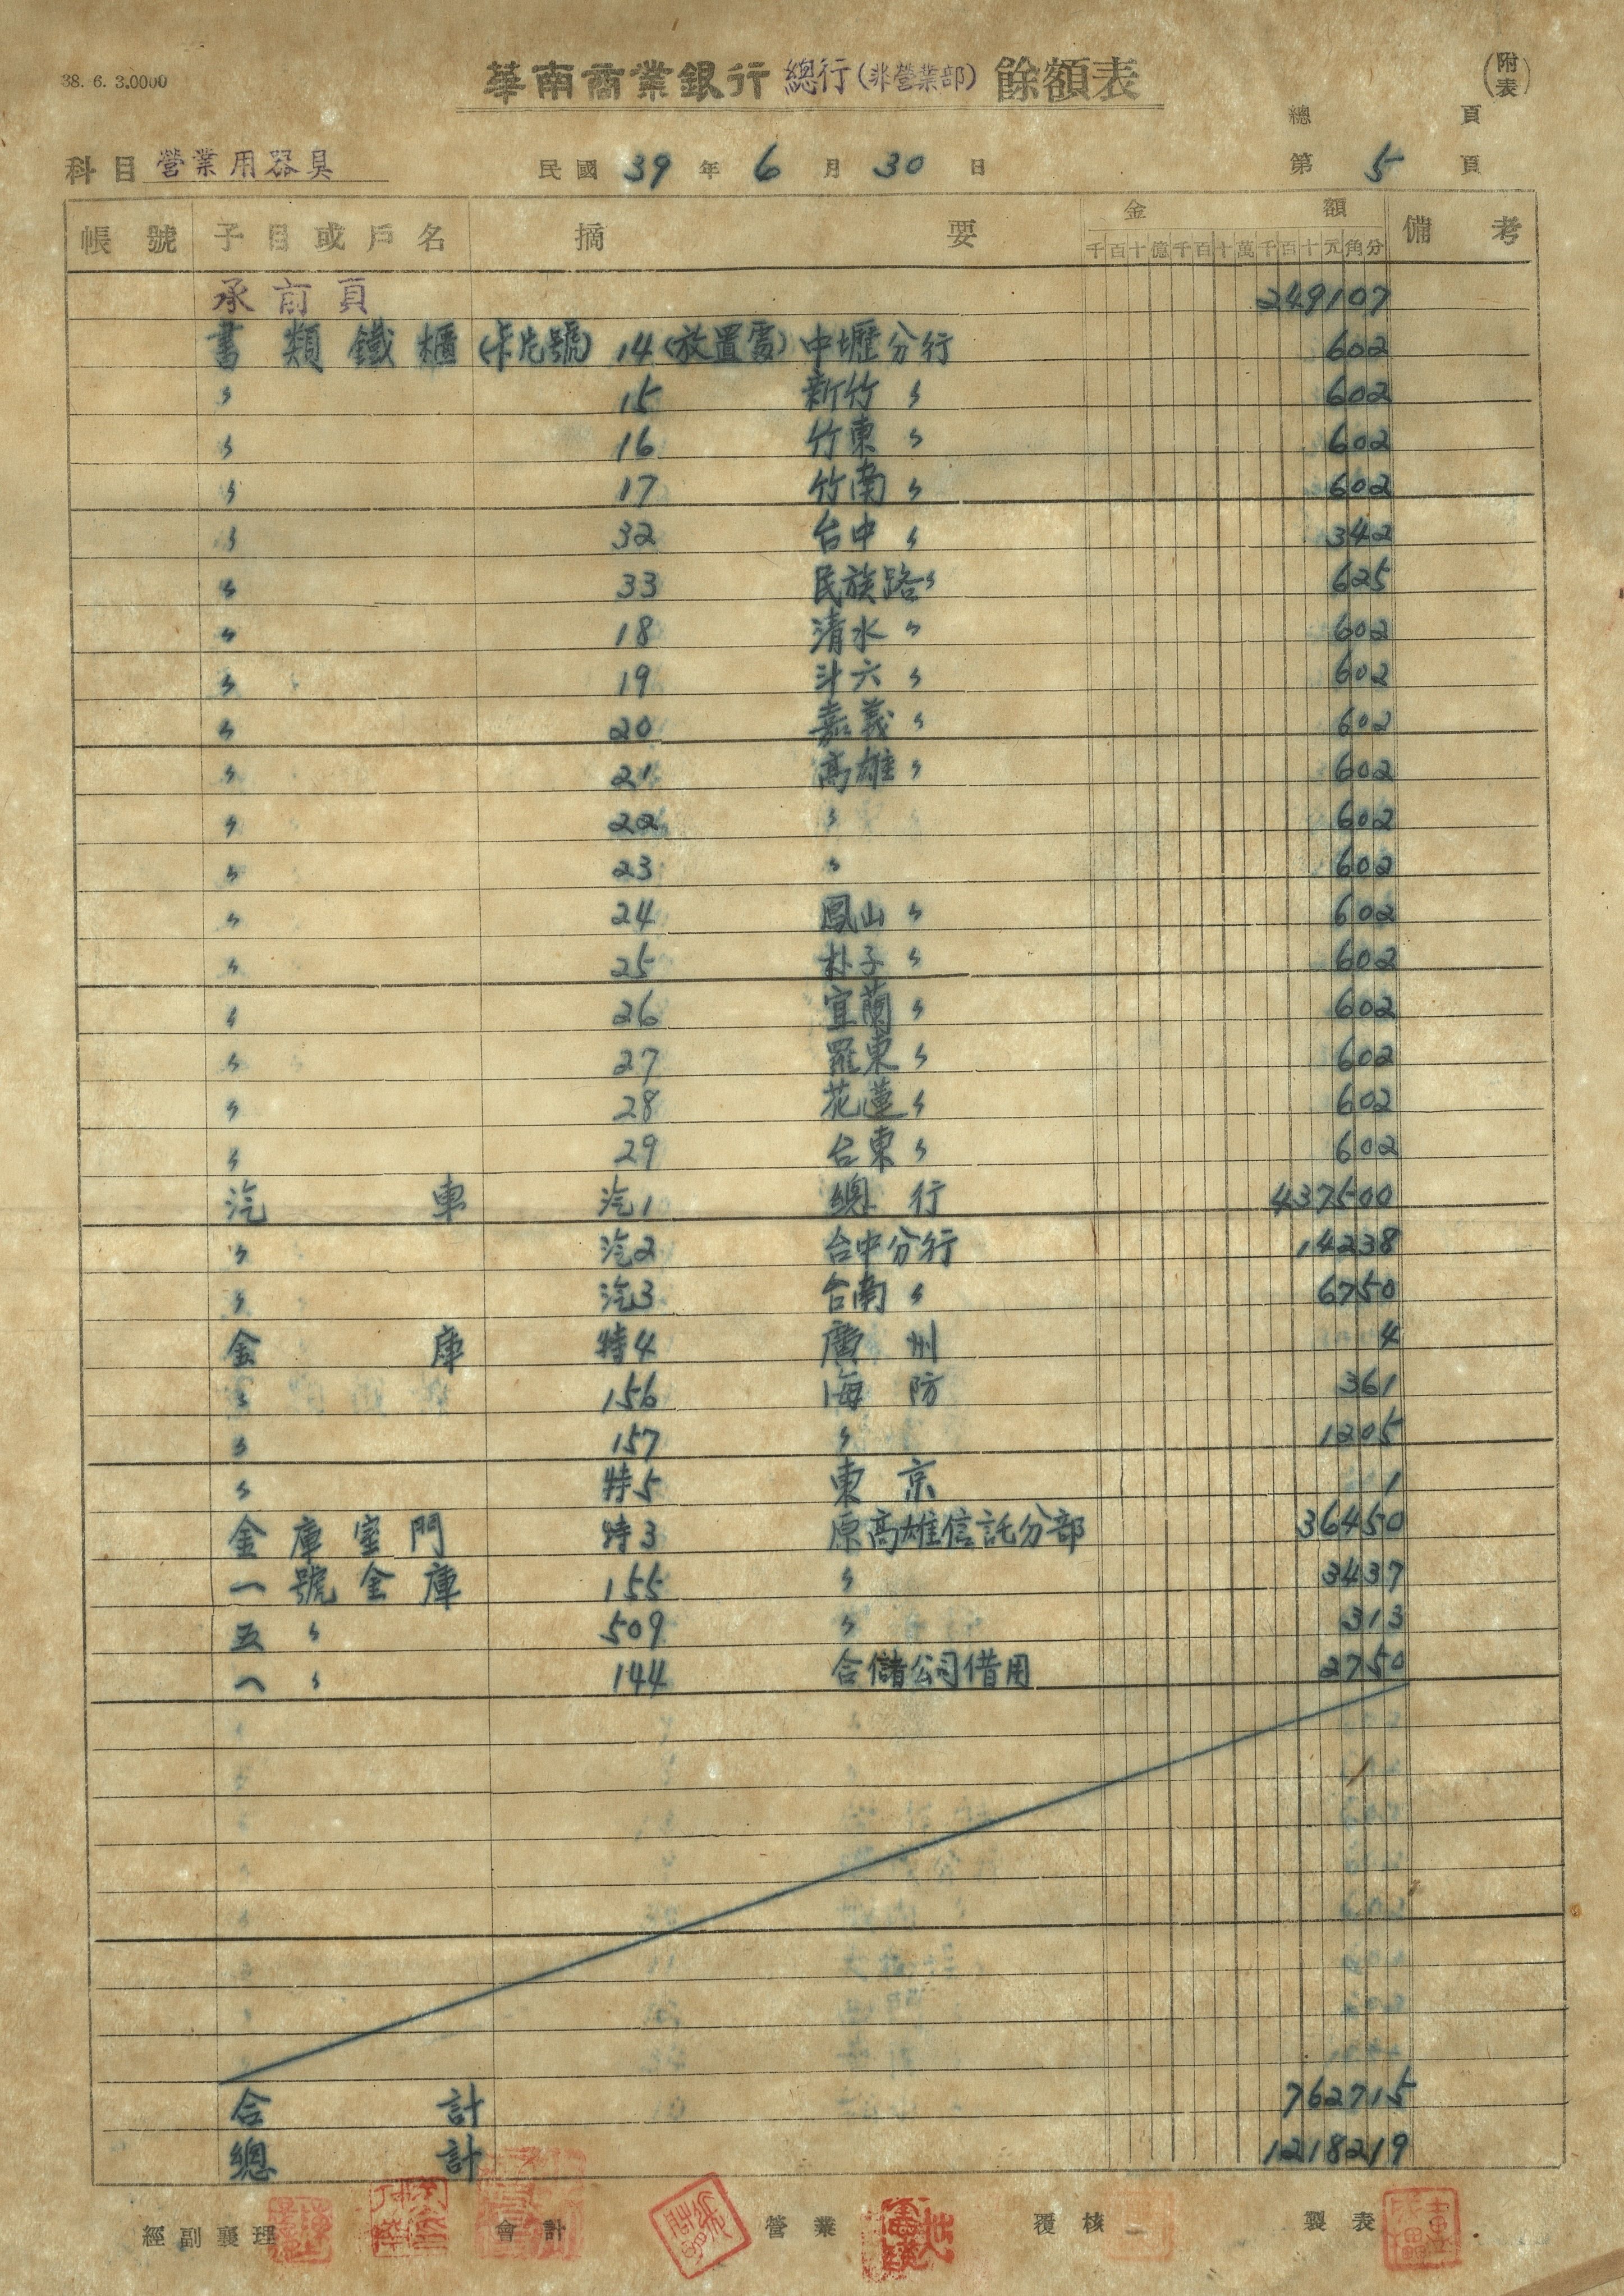 38. 6. 3.0000
華南商業銀行 總行(非營業部) 餘額表 (附表)
總 頁
科目 營業用器具 民國 39 年 6 月 30 日 第 5 頁
帳號 子目或戶名 摘要 金額 備考
千百十億千百十萬千百十元角分
承前頁 249107
書類鐵櫃 (卡片號) 14 (放置處) 中壢分行 602
〃 15 新竹 〃 602
〃 16 竹東 〃 602
〃 17 竹南 〃 602
〃 32 台中 〃 342
〃 33 民族路 〃 625
〃 18 清水 〃 602
〃 19 斗六 〃 602
〃 20 嘉義 〃 602
〃 21 高雄 〃 602
〃 22 〃 602
〃 23 〃 602
〃 24 鳳山 〃 602
〃 25 朴子 〃 602
〃 26 宜蘭 〃 602
〃 27 羅東 〃 602
〃 28 花蓮 〃 602
〃 29 台東 〃 602
汽車 汽1 總行 437500
〃 汽2 台中分行 14238
〃 汽3 台南 〃 6750
金庫 特4 廣州 4
〃 156 海防 361
〃 157 〃 1205
〃 特5 東京 1
金庫室門 特3 原高雄信託分部 36450
一號金庫 155 〃 3437
五 〃 509 〃 313
一 〃 144 合儲公司借用 2750
合計 762715
總計 1218219
經副襄理 會計 營業 覆核 製表